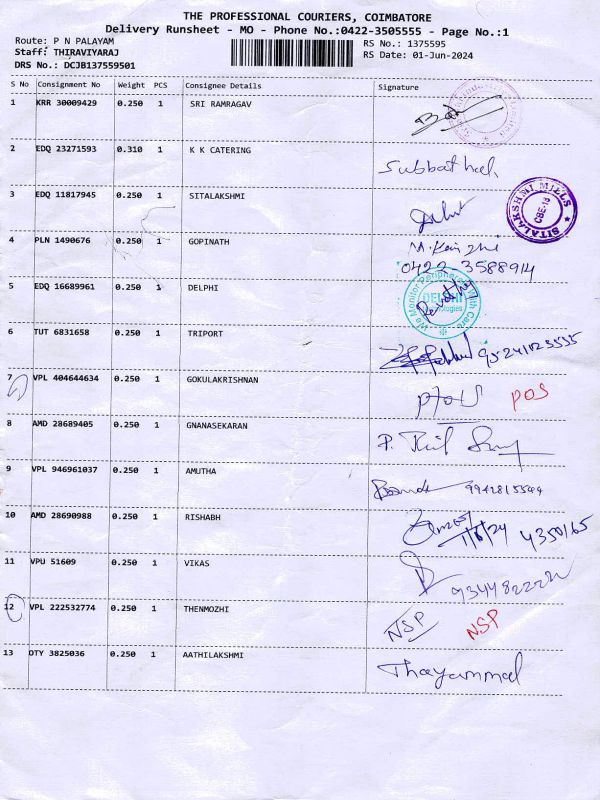 THE PROFESSIONAL COURIERS, COIMBATORE
Delivery Runsheet - MO - Phone No.:0422-3505555 - Page No.:1
Route: P N PALAYAM RS No.: 1375595
Staff: THIRAVIYARAJ RS Date: 01-Jun-2024
DRS No.: DCJB137559501
S No Consignment No Weight PCS Consignee Details Signature
1 KRR 30009429 0.250 1 SRI RAMRAGAV
2 EDQ 23271593 0.310 1 K K CATERING
3 EDQ 11817945 0.250 1 SITALAKSHMI
SITALAKSHMI MILLS
4 PLN 1490676 0.250 1 GOPINATH
0422-3588914
5 EDQ 16689961 0.250 1 DELPHI Revathy
We Monitor Peripherals With Care
DELPHI
6 TUT 6831658 0.250 1 TRIPORT
7 VPL 404644634 0.250 1 GOKULAKRISHNAN POS
8 AMD 28689405 0.250 1 GNANASEKARAN
9 VPL 946961037 0.250 1 AMUTHA
10 AMD 28690988 0.250 1 RISHABH 1/6/24 4350165
11 VPU 51609 0.250 1 VIKAS
12 VPL 222532774 0.250 1 THENMOZHI NSP NSP
13 OTY 3825036 0.250 1 AATHILAKSHMI Thayammal